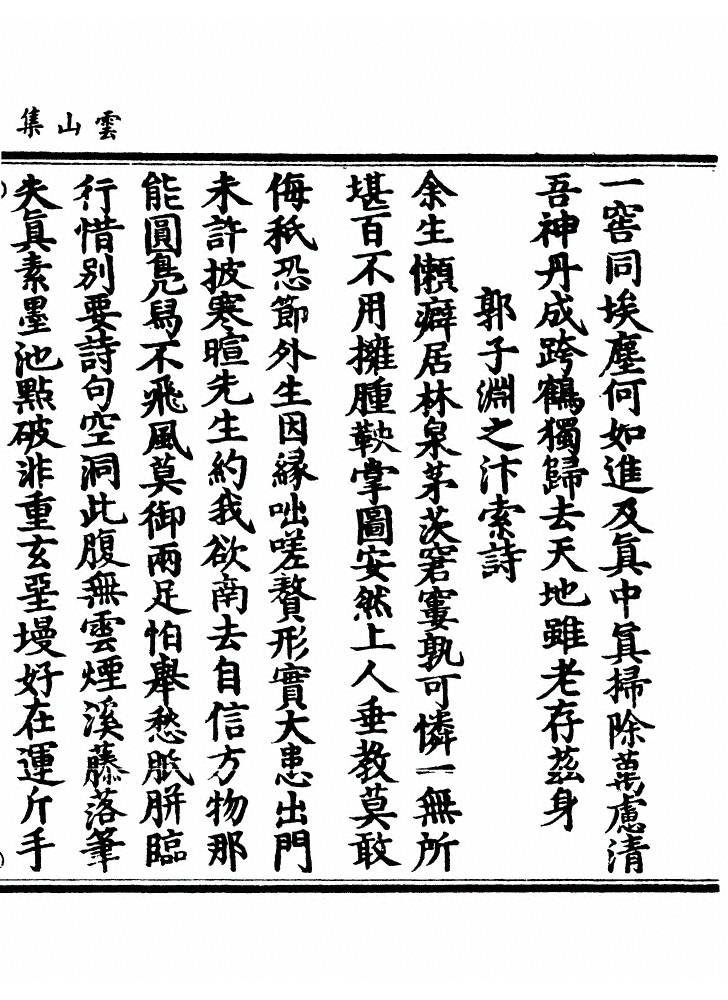 雲山集
一窖同埃塵何如進及眞中眞掃除萬慮清
吾神丹成跨鶴獨歸去天地雖老存茲身
郭子淵之汴索詩
余生懶癖居林泉茅茨窘窶孰可憐一無所
堪百不用擁腫鞅掌圖安然上人垂教莫敢
侮秪恐節外生因緣咄嗟贅形實大患出門
未許披寒暄先生約我欲南去自信方物那
能圓鳧舄不飛風莫御兩足怕舉愁胝胼臨
行惜別要詩句空洞此腹無雲煙溪藤落筆
失眞素墨池點破非重玄堊墁好在運斤手